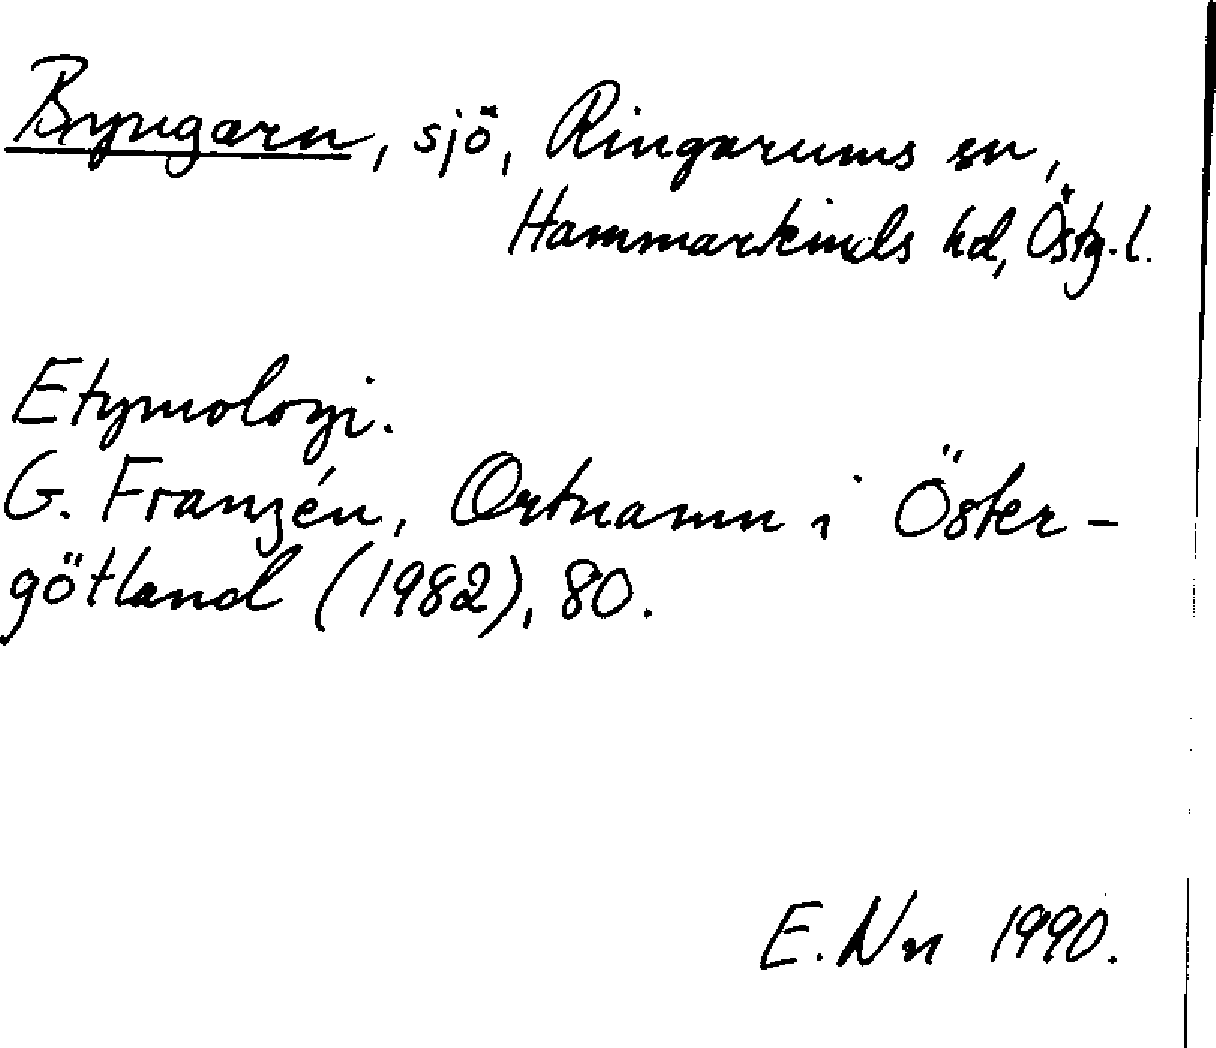 Byngarn, sjö, Ringarums sn,
Hammarkinds hd, Östg.l.
Etymologi.
G. Franzén, Ortnamn i Öster-
götland (1982), 80.
E. Nn 1990.